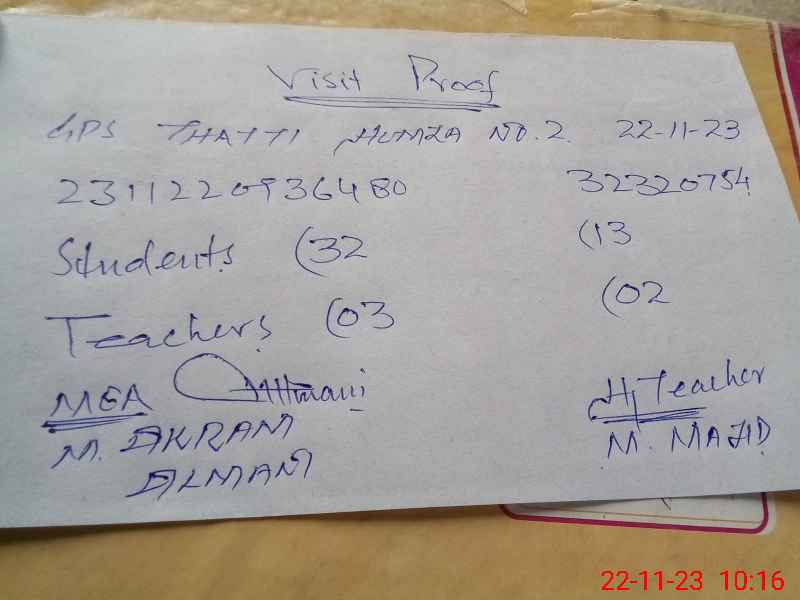 Visit Proof
GPS THATTI HUMZA NO.2. 22-11-23
2311220936480 32320754
Students (32 (13
Teachers (03 (02
MEA H/Teacher
M. AKRAM M. MAJID
ALMANI
22-11-23 10:16